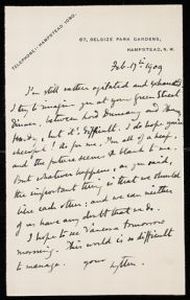 TELEPHONE: HAMPSTEAD 1090.
67, BELSIZE PARK GARDENS,
HAMPSTEAD, N.W.
Feb. 19th 1909
I'm still rather agitated and exhausted
I try to imagine you at your great
dinner, between Lord Dunsany and
but it's difficult. I do hope you're
cheerful! As for me, I'm all of a heap,
and the future seems a blank to me.
But whatever happens, as you said,
the important thing is that we should
like each other; and we can neither
of us have any doubt that we do.
I hope to see Vanessa tomorrow
morning. This world is so difficult
to manage. your
Lytton.